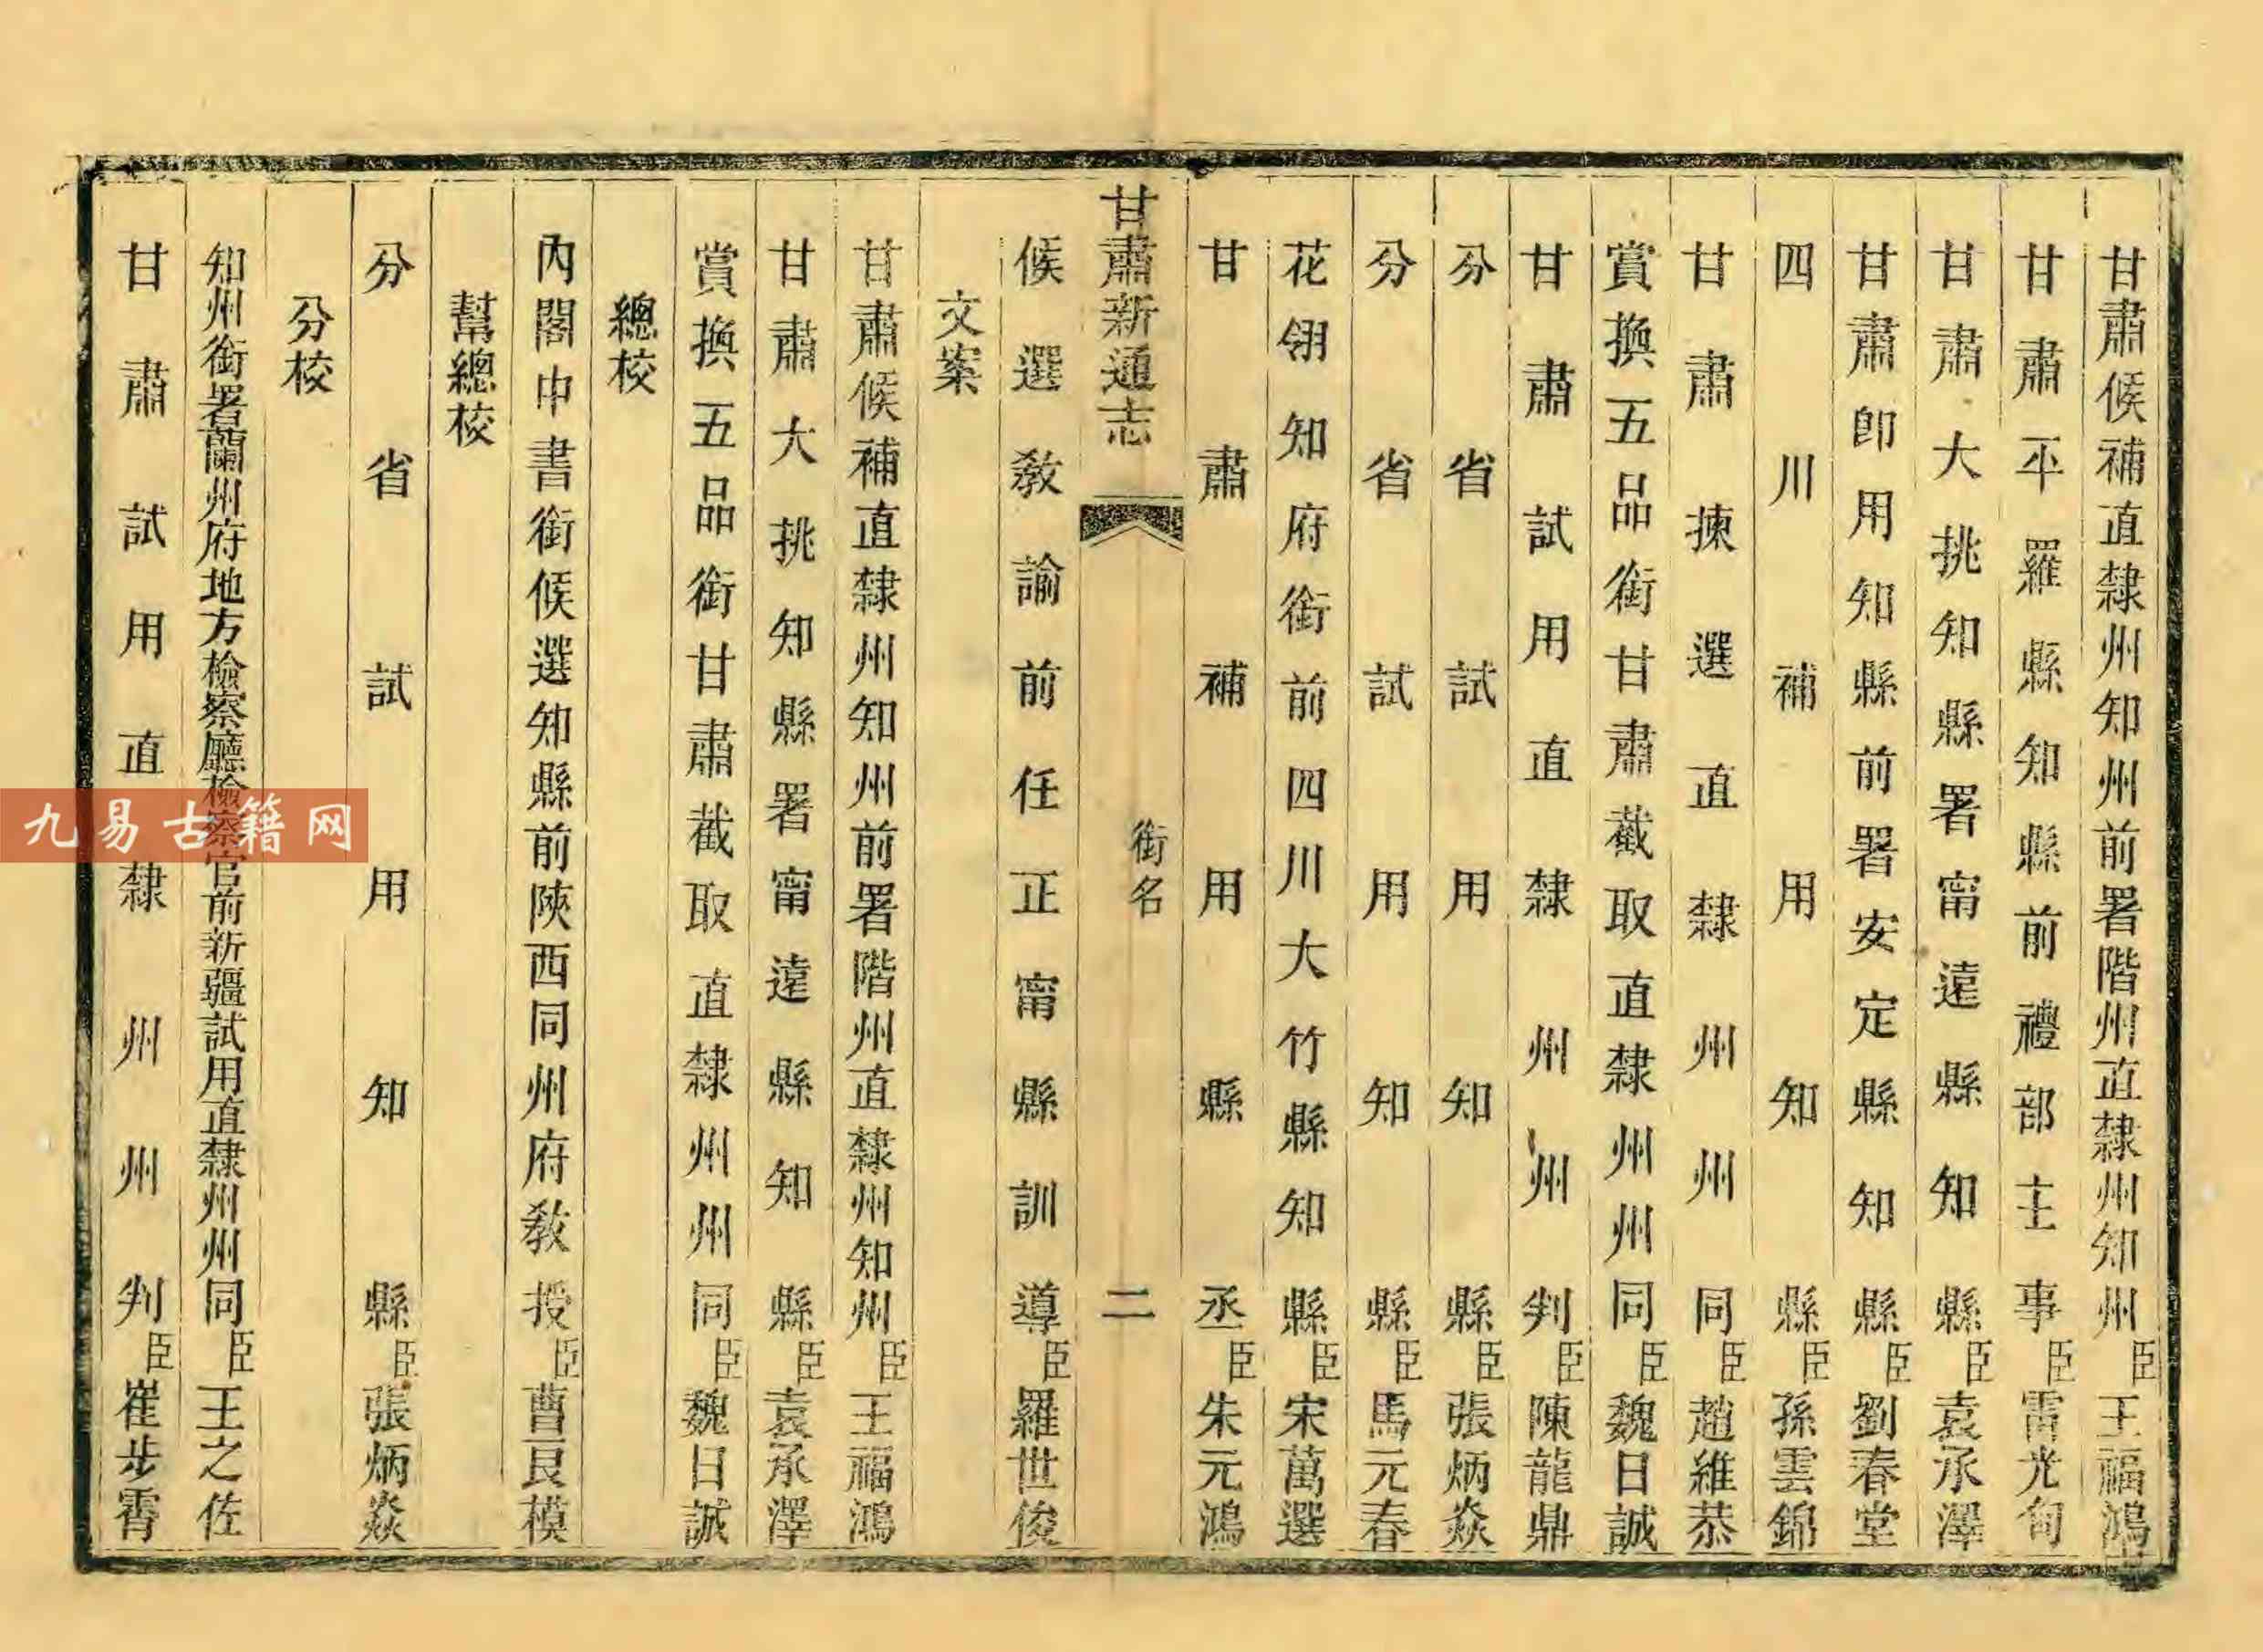 甘肅候補直隸州知州前署階州直隸州知州臣王福鴻
甘肅平羅縣知縣前禮部主事臣雷光甸
甘肅大挑知縣署甯遠縣知縣臣袁承澤
甘肅卽用知縣前署安定縣知縣臣劉春堂
四川補用知縣臣孫雲錦
甘肅揀選直隸州州同臣趙維恭
賞換五品銜甘肅截取直隸州州同臣魏日誠
甘肅試用直隸州州判臣陳龍鼎
分省試用知縣臣張炳焱
分省試用知縣臣馬元春
花翎知府銜前四川大竹縣知縣臣宋萬選
甘肅補用縣丞臣朱元鴻
甘肅新通志
銜名
二
候選敎諭前任正甯縣訓導臣羅世俊
文案
甘肅候補直隸州知州前署階州直隸州知州臣王福鴻
甘肅大挑知縣署甯遠縣知縣臣袁承澤
賞換五品銜甘肅截取直隸州州同臣魏日誠
總校
內閣中書銜候選知縣前陝西同州府敎授臣曹良模
幫總校
分省試用知縣臣張炳焱
分校
知州銜署蘭州府地方檢察廳檢察官前新疆試用直隸州州同臣王之佐
甘肅試用直隸州州判臣崔步霄
九易古籍网